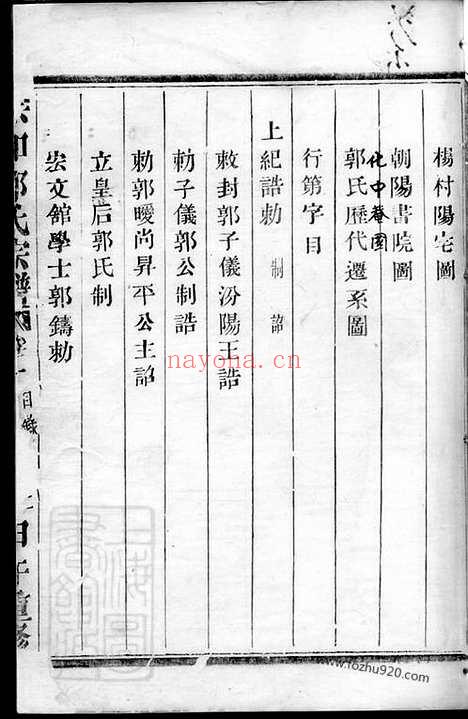 楊村陽宅圖
朝陽書院圖
化中菴圖
郭氏歷代遷系圖
行第字目
上紀誥勅 制 詔
敕封郭子儀汾陽王誥
勅子儀郭公制誥
勅郭曖尚昇平公主詔
立皇后郭氏制
宏文館學士郭鑄勅
郭氏宗譜
目錄
nayona.cn
www.fozhu920.com